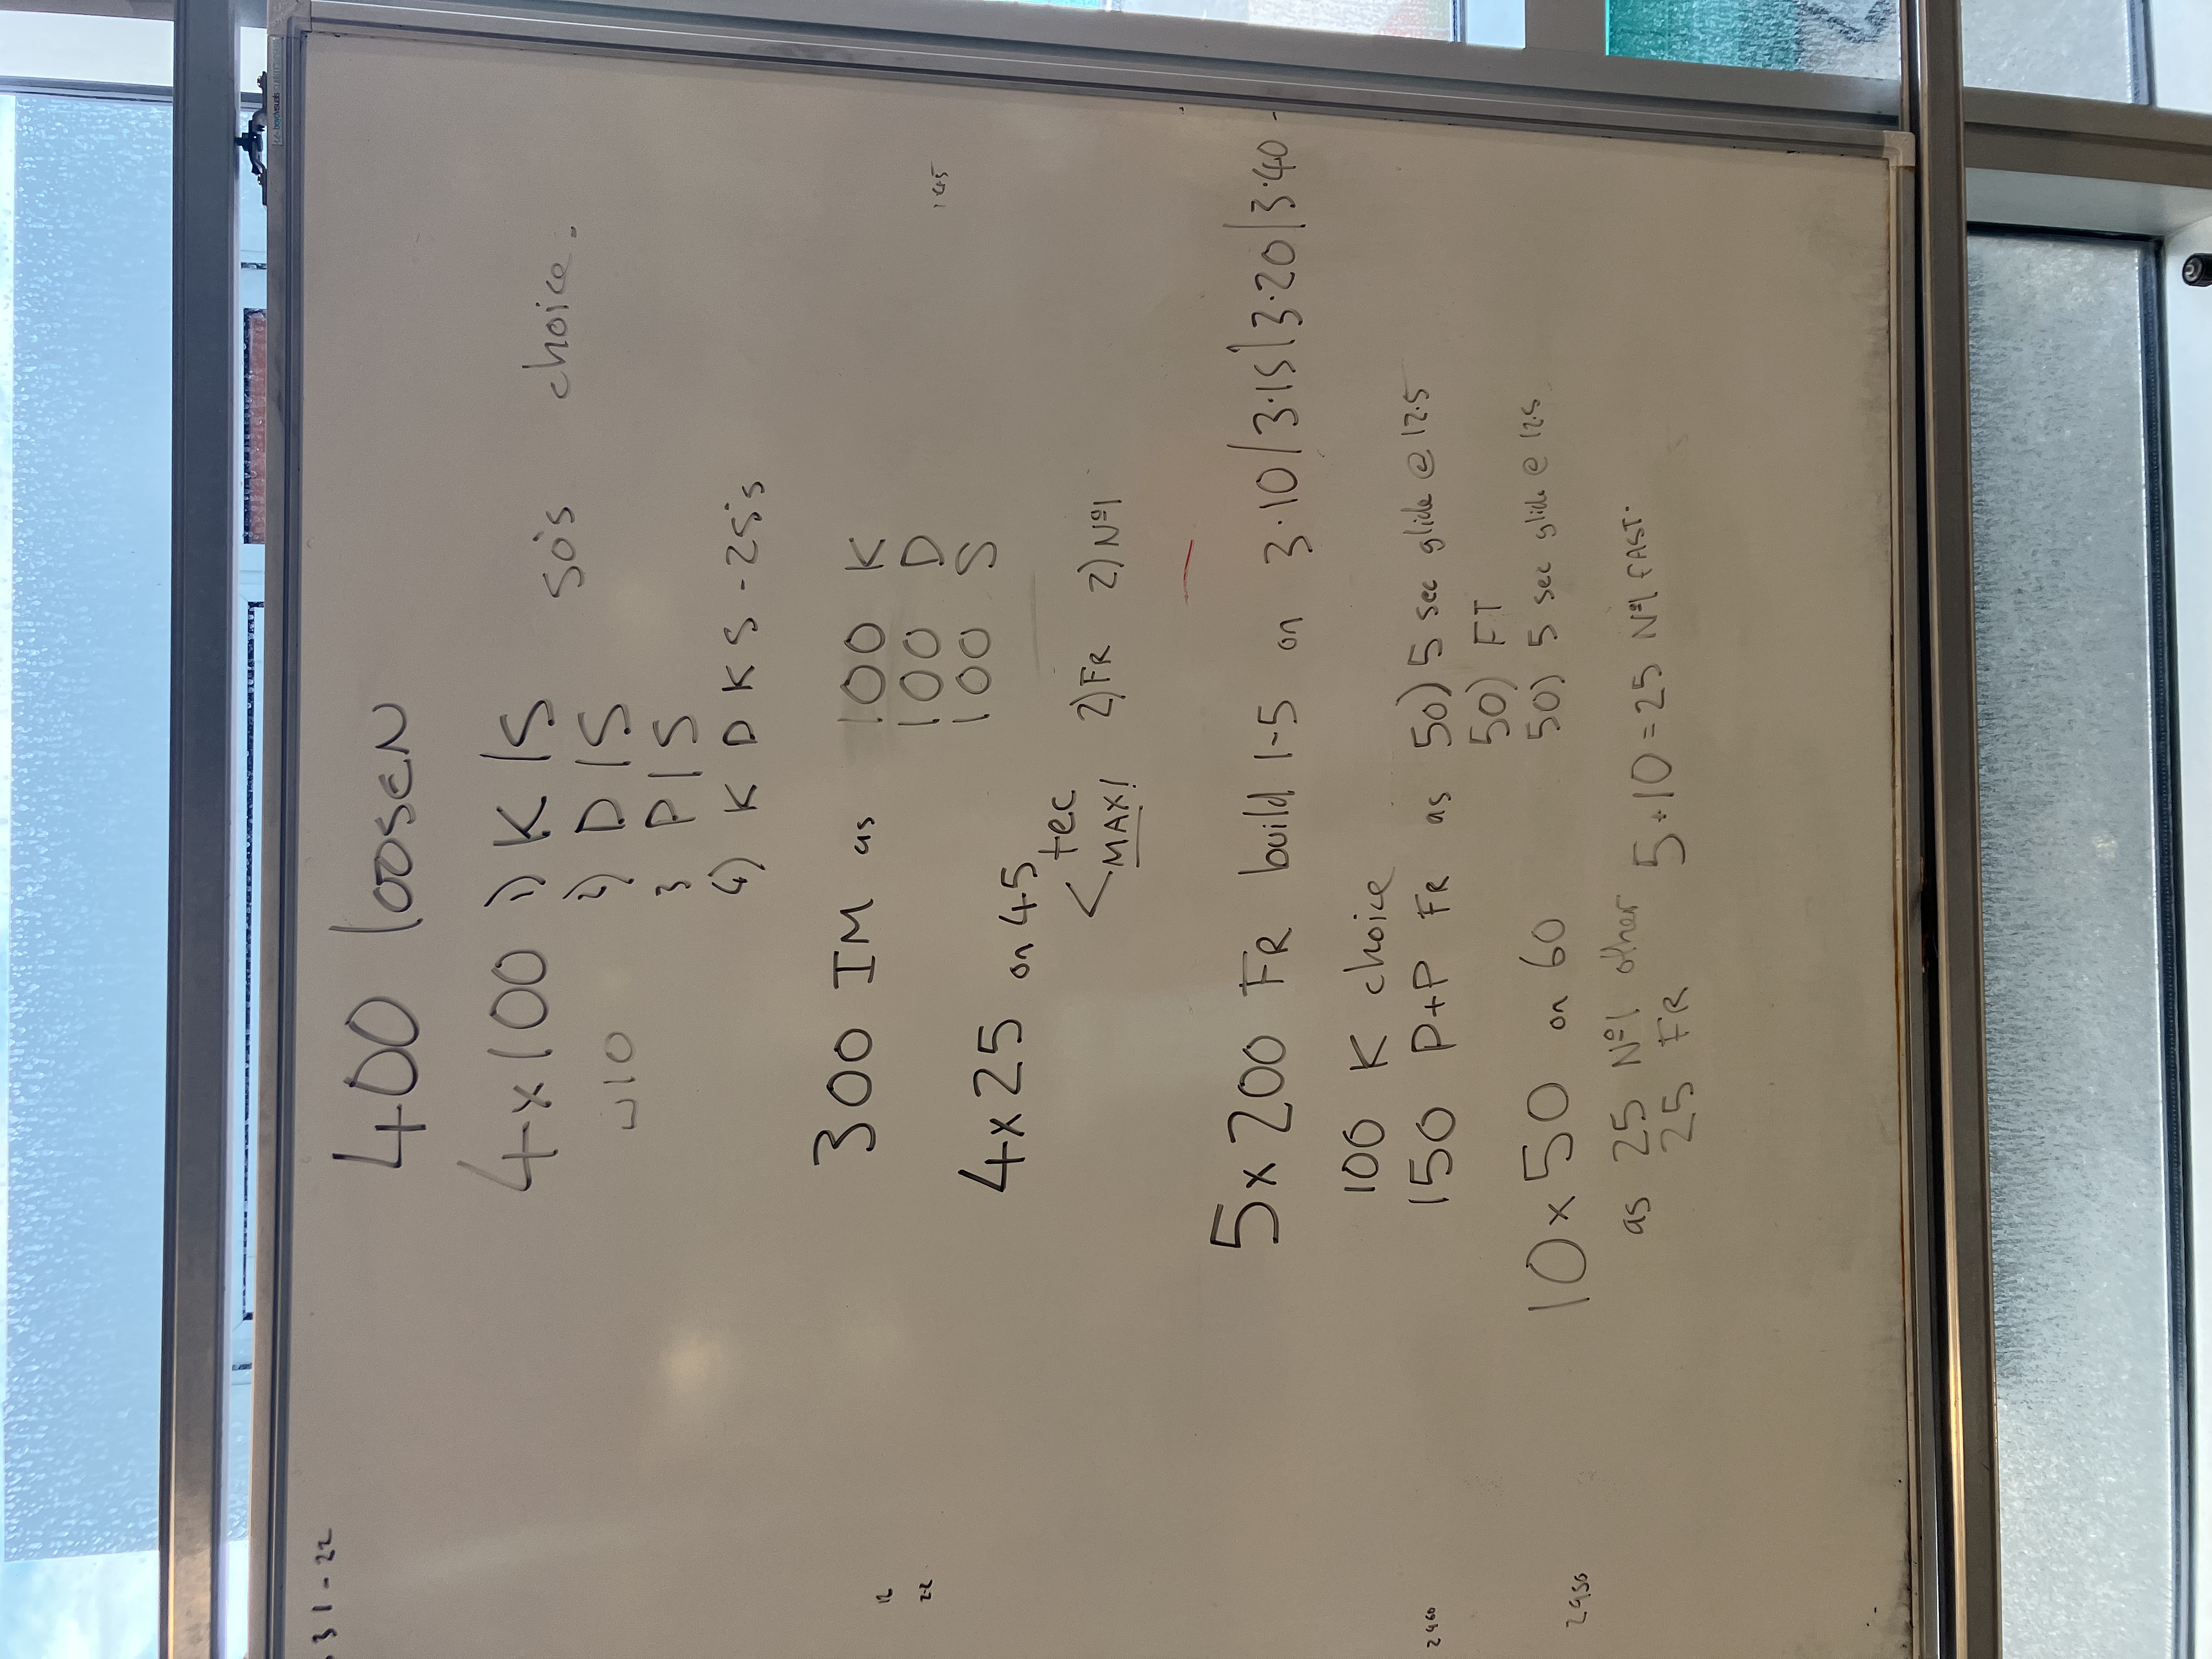 31-22
400 loosen
4x100 1) K/S 50's choice.
2) D/S
ப10
3 P/S
4) K D K S - 25's
12
300 IM as 100 K
22
100 D
1.45
100 S
4x25 on 45
< tec 2) FR 2) Nº1
MAX!
5x200 FR build 1-5 on 3.10/3.15/3.20/3.40
100 K choice
2460
150 P+P FR as 50) 5 sec glide @ 12.5
50) FT
50) 5 sec glide @ 12.5
10x50 on 60
as 25 Nº1 other
25 FR 5+10 = 25 Nº1 FAST.